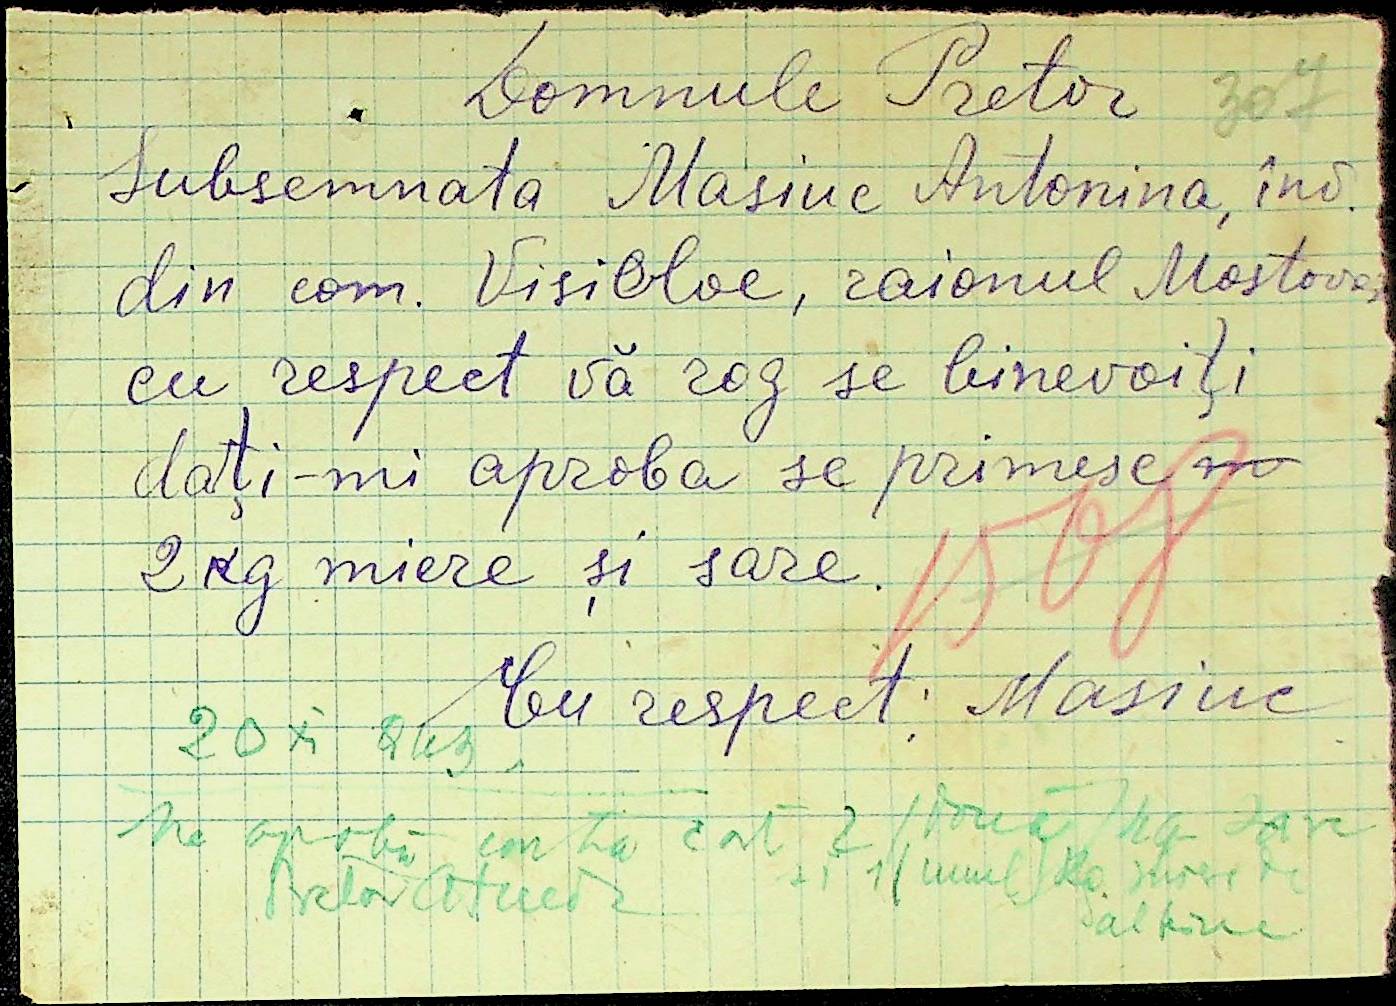 Domnule Pretor
307
Subsemnata Masiuc Antonina, înv.
din com. Visiloe, raionul Mostovoi
cu respect vă rog se binevoiți
dați-mi aproba se primesc
2 kg miere și sare.
1508
Cu respect: Masiuc
20 XI
Se aprobă contra cost 2 (Două) kg sare
și 1 (unul) kg miere de
albine
Pretor